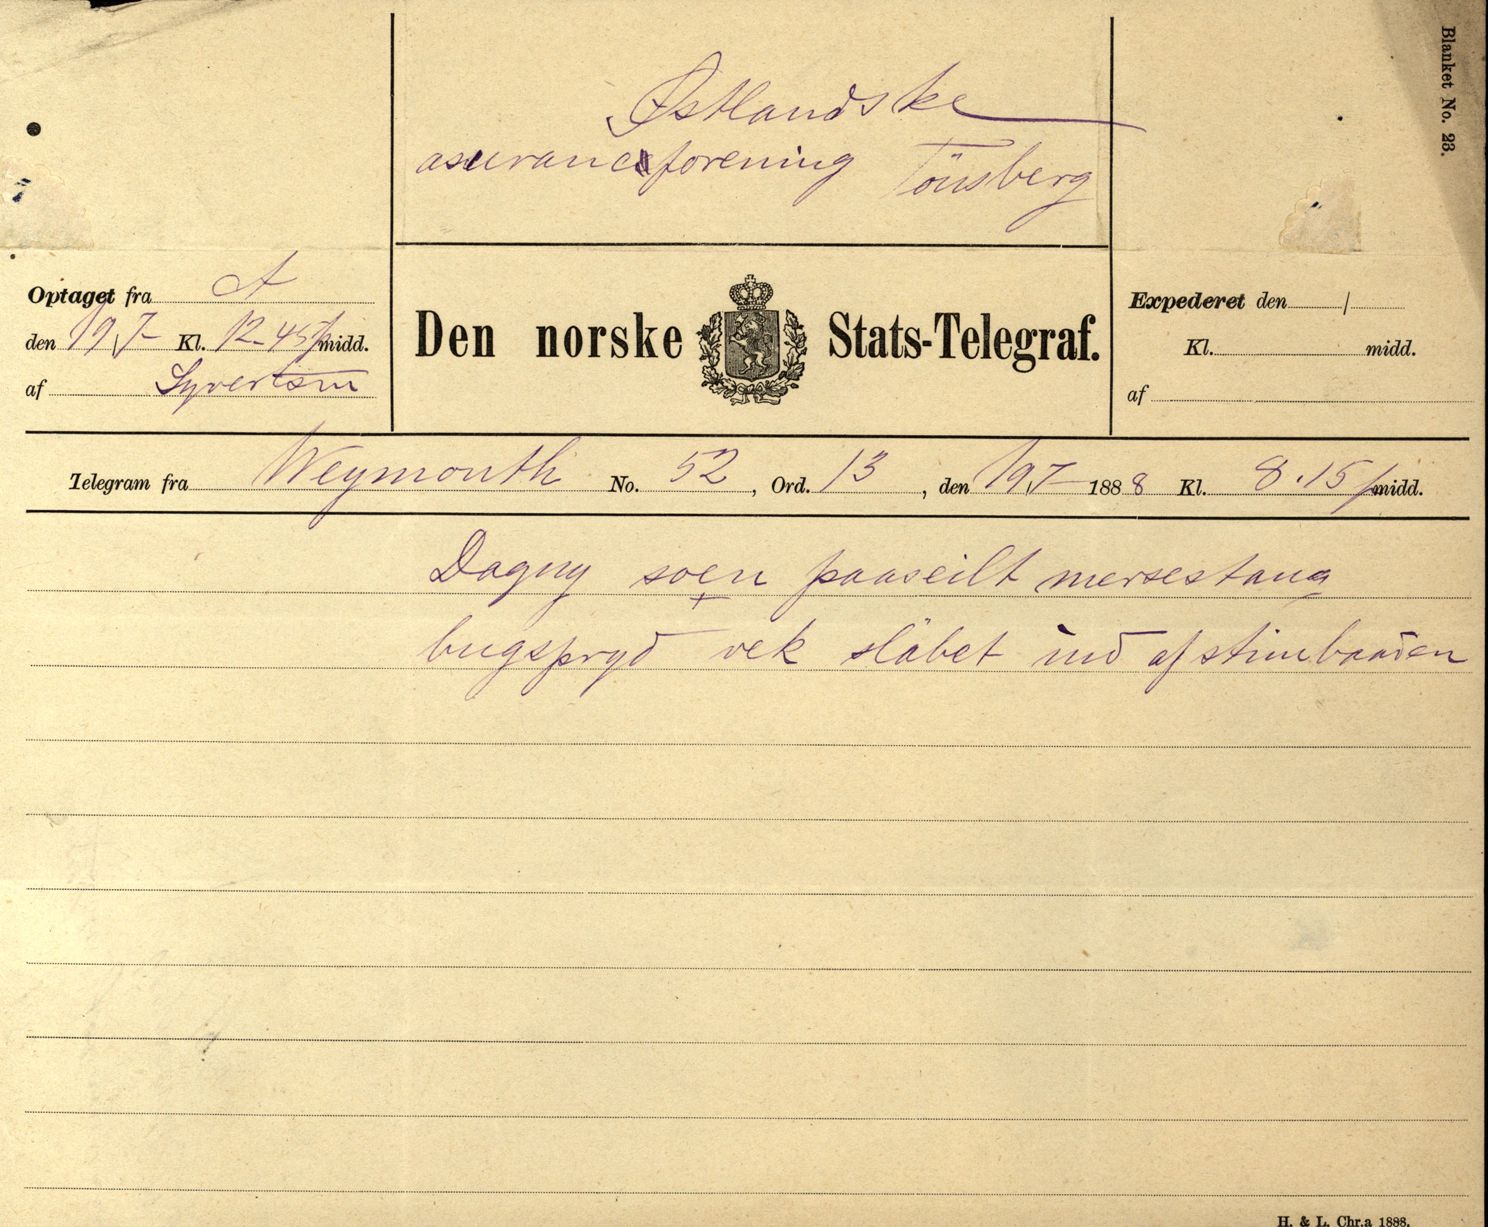 Blanket No. 23.
Østlandske
asuranceforening Tönsberg
Optaget fra A
den 19/7 Kl. 12.45 f midd.
af Syvertsen
Den norske Stats-Telegraf.
Expederet den /
Kl. midd.
af
Telegram fra Weymouth No. 52, Ord. 13, den 19/7 1888 Kl. 8.15 f midd.
Dagny soen paaseilt mersestang
bugspryd vek släbet ind af stimbaaden
H. & L. Chr.a 1888.